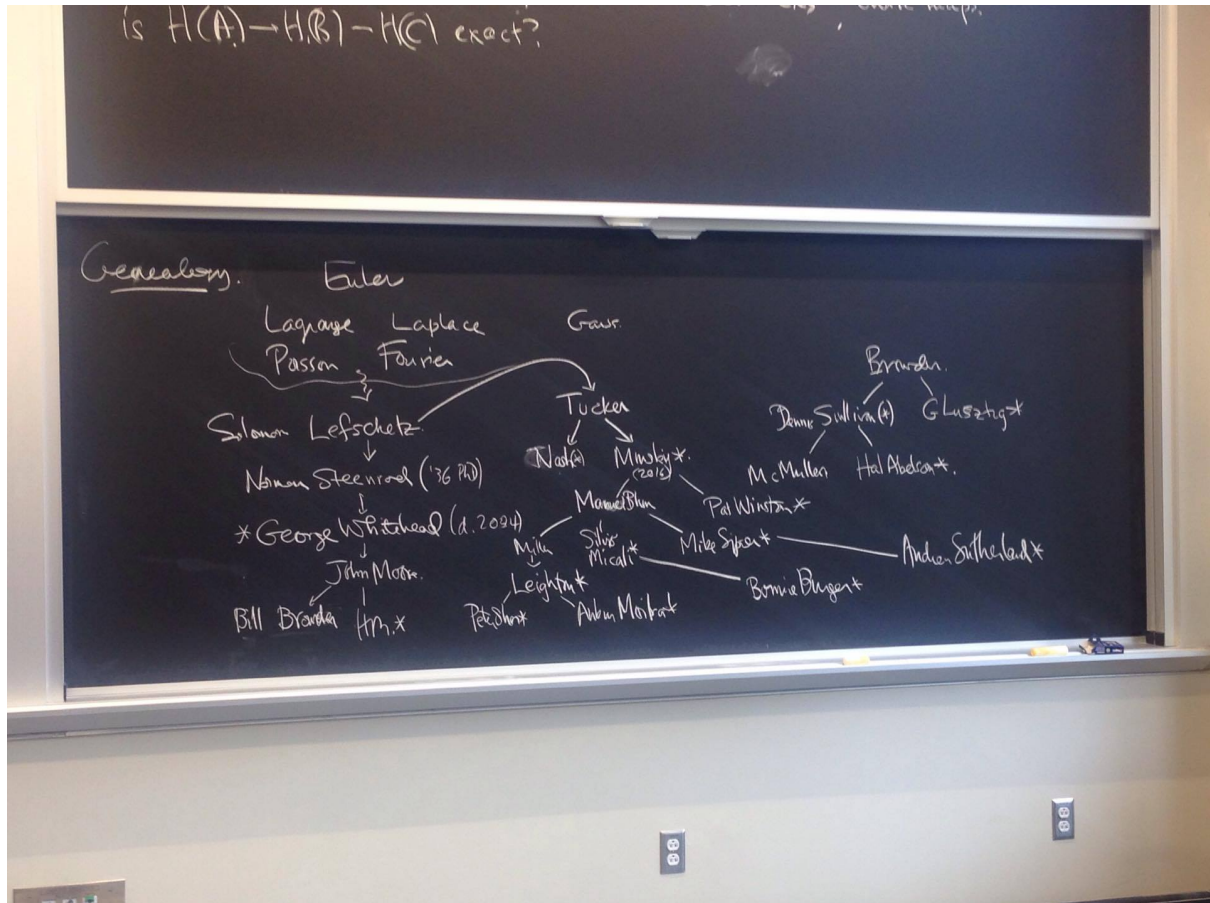 is H(A) → H(B) → H(C) exact?
Genealogy.
Euler
Lagrange Laplace Gauss.
Poisson Fourier
Solomon Lefschetz
Norman Steenrod ('36 PhD)
* George Whitehead (d. 2004)
John Moore.
Bill Browder HM.*
Tucker
Nash(*) Minsky*.
(2016)
Manuel Blum Pat Winston*
Silvio
Micali* Mike Sipser* Andrew Sutherland*
Leighton* Bonnie Berger*
Peter Shor* Ankur Moitra*
Browder.
Dennis Sullivan(*) G Lusztig*
McMullen Hal Abelson*.